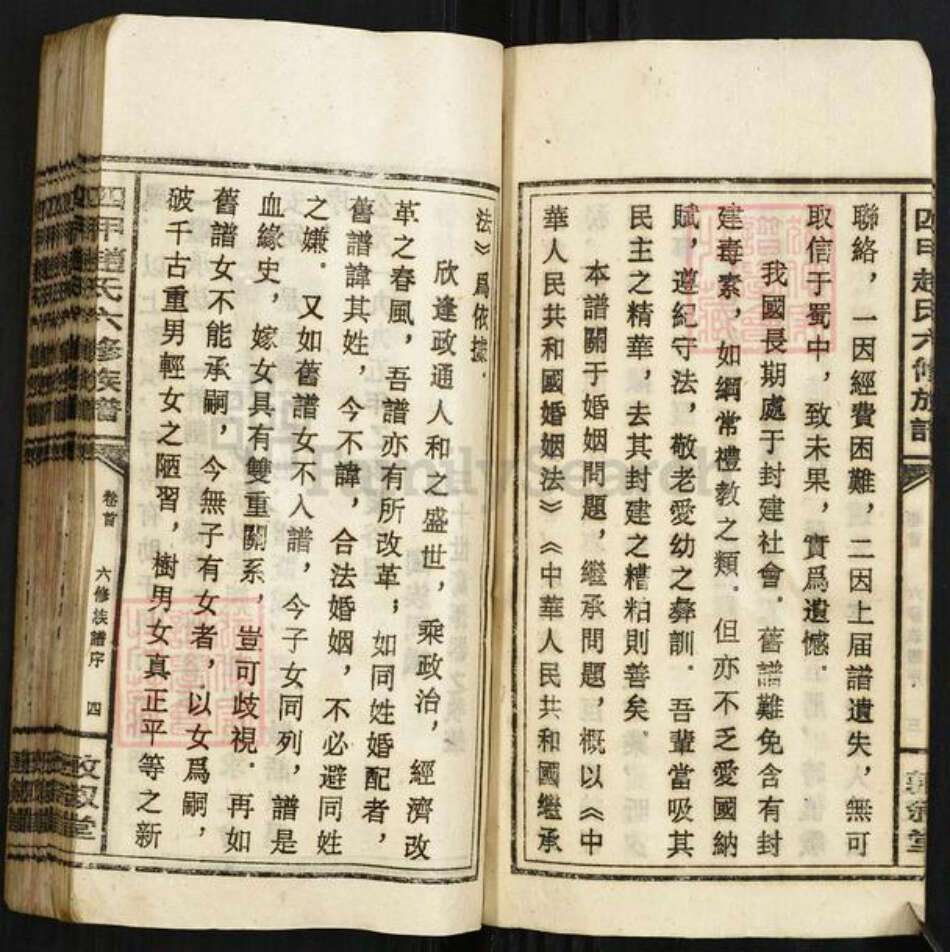 四甲趙氏六修族譜
聯絡，一因經費困難，二因上届譜遺失，無可
取信于蜀中，致未果，實爲遺憾．
我國長期處于封建社會．舊譜難免含有封
建毒素，如綱常禮教之類．但亦不乏愛國納
賦，遵紀守法，敬老愛幼之彝訓．吾輩當吸其
民主之精華，去其封建之糟粕則善矣．
本譜關于婚姻問題，繼承問題，概以《中
華人民共和國婚姻法》《中華人民共和國繼承
法》爲依據．
欣逢政通人和之盛世，乘政治，經濟改
革之春風，吾譜亦有所改革；如同姓婚配者，
舊譜諱其姓，今不諱，合法婚姻，不必避同姓
之嫌．又如舊譜女不入譜，今子女同列，譜是
血緣史，嫁女具有雙重關系，豈可歧視．再如
舊譜女不能承嗣，今無子有女者，以女爲嗣，
破千古重男輕女之陋習，樹男女真正平等之新
四甲趙氏六修族譜
卷首
六修族譜序
四
FamilySearch